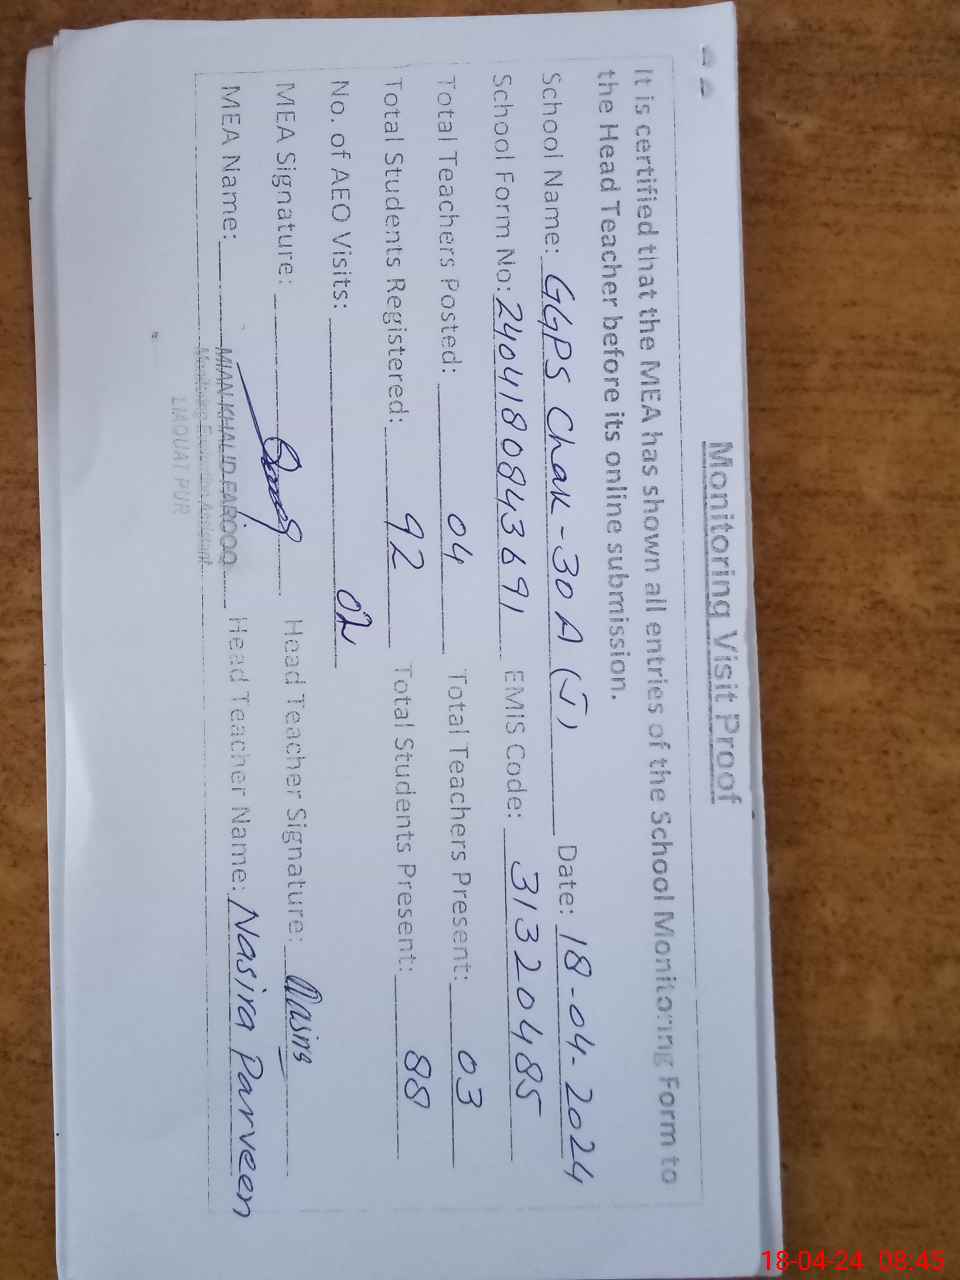 Monitoring Visit Proof
It is certified that the MEA has shown all entries of the School Monitoring Form to
the Head Teacher before its online submission.
School Name: GGPS Chak-30 A (J) Date: 18-04-2024
School Form No: 2404180843691 EMIS Code: 31320485
Total Teachers Posted: 04 Total Teachers Present: 03
Total Students Registered: 92 Total Students Present: 88
No. of AEO Visits: 02
MEA Signature: Head Teacher Signature: Nasira
MEA Name: MIAN KHALID FAROOQ Head Teacher Name: Nasira Parveen
LIAQUAT PUR
18-04-24 08:45